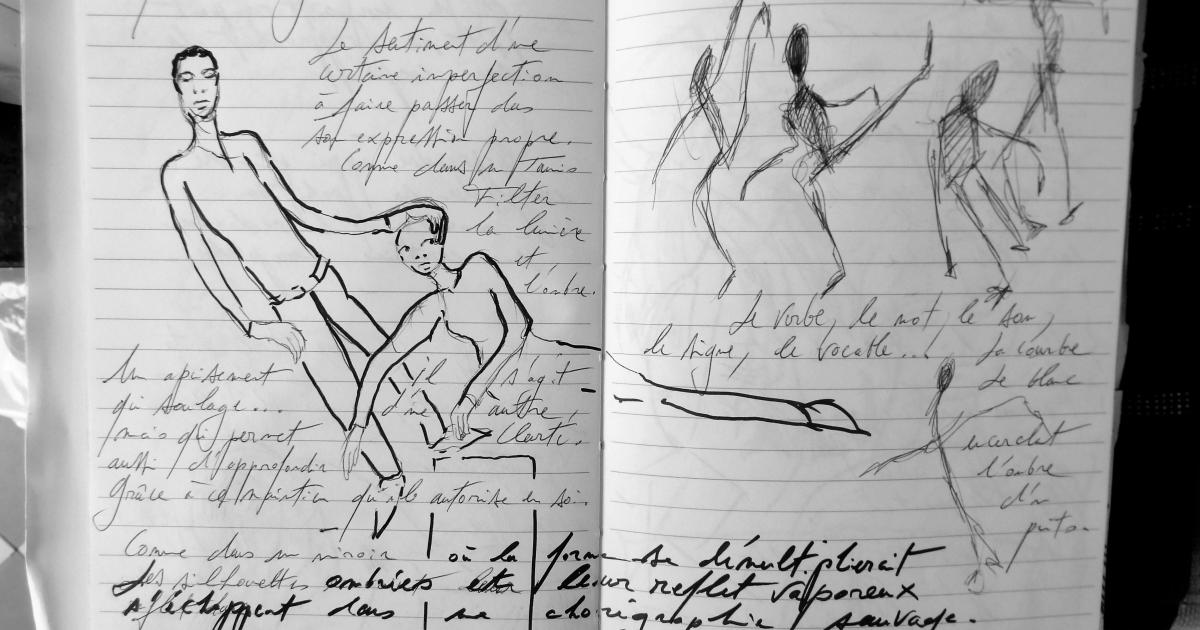 Le sentiment d'une
certaine imperfection
à faire passer dans
son expression propre.
Comme dans un Tamis
Filtrer
la lumière
et
l'ombre.
Un apaisement
qui soulage...
mais qui permet
aussi d'approfondir
grâce à qu'il autorise en soi.
il s'agit
d'une autre,
clarté.
Le verbe, le mot, le son,
le signe, le vocable...! La courbe
de blanc
encerclant
l'ombre
d'un
puits.
Comme dans un miroir où la forme se démultiplierait
Les silhouettes ombrées et leur reflet vaporeux
s'échappent dans une chorégraphie sauvage.